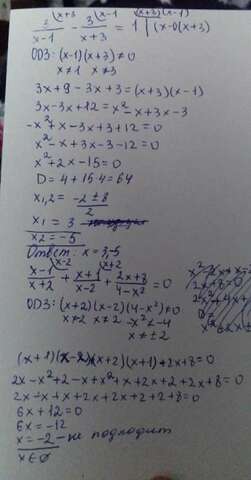 3^(x+3)/(x-1) - 3^(x-1)/(x+3) = 1^((x+3)(x-1)) | (x-1)(x+3)
ОДЗ: (x-1)(x+3) ≠ 0
x ≠ 1 x ≠ 3
3x+9-3x+3=(x+3)(x-1)
3x-3x+12=x²-x+3x-3
-x²+x-3x+3+12=0
x²-x+3x-3-12=0
x²+2x-15=0
D=4+15·4=64
x₁,₂= (-2±8)/2
x₁=3
x₂=-5
Ответ: x=3;-5
(x-1)/(x+2) + (x+1)/(x-2) + (2x+8)/(4-x²) = 0
ОДЗ: (x+2)(x-2)(4-x²)≠0
x≠2 x≠2 -x²≠-4
x≠±2
2x-x²+2-x+x²+x+2x+2+2x+8=0
2x-x+x+2x+2x+2+2+8=0
6x+12=0
6x=-12
x=-2 - не подходит
x∈∅